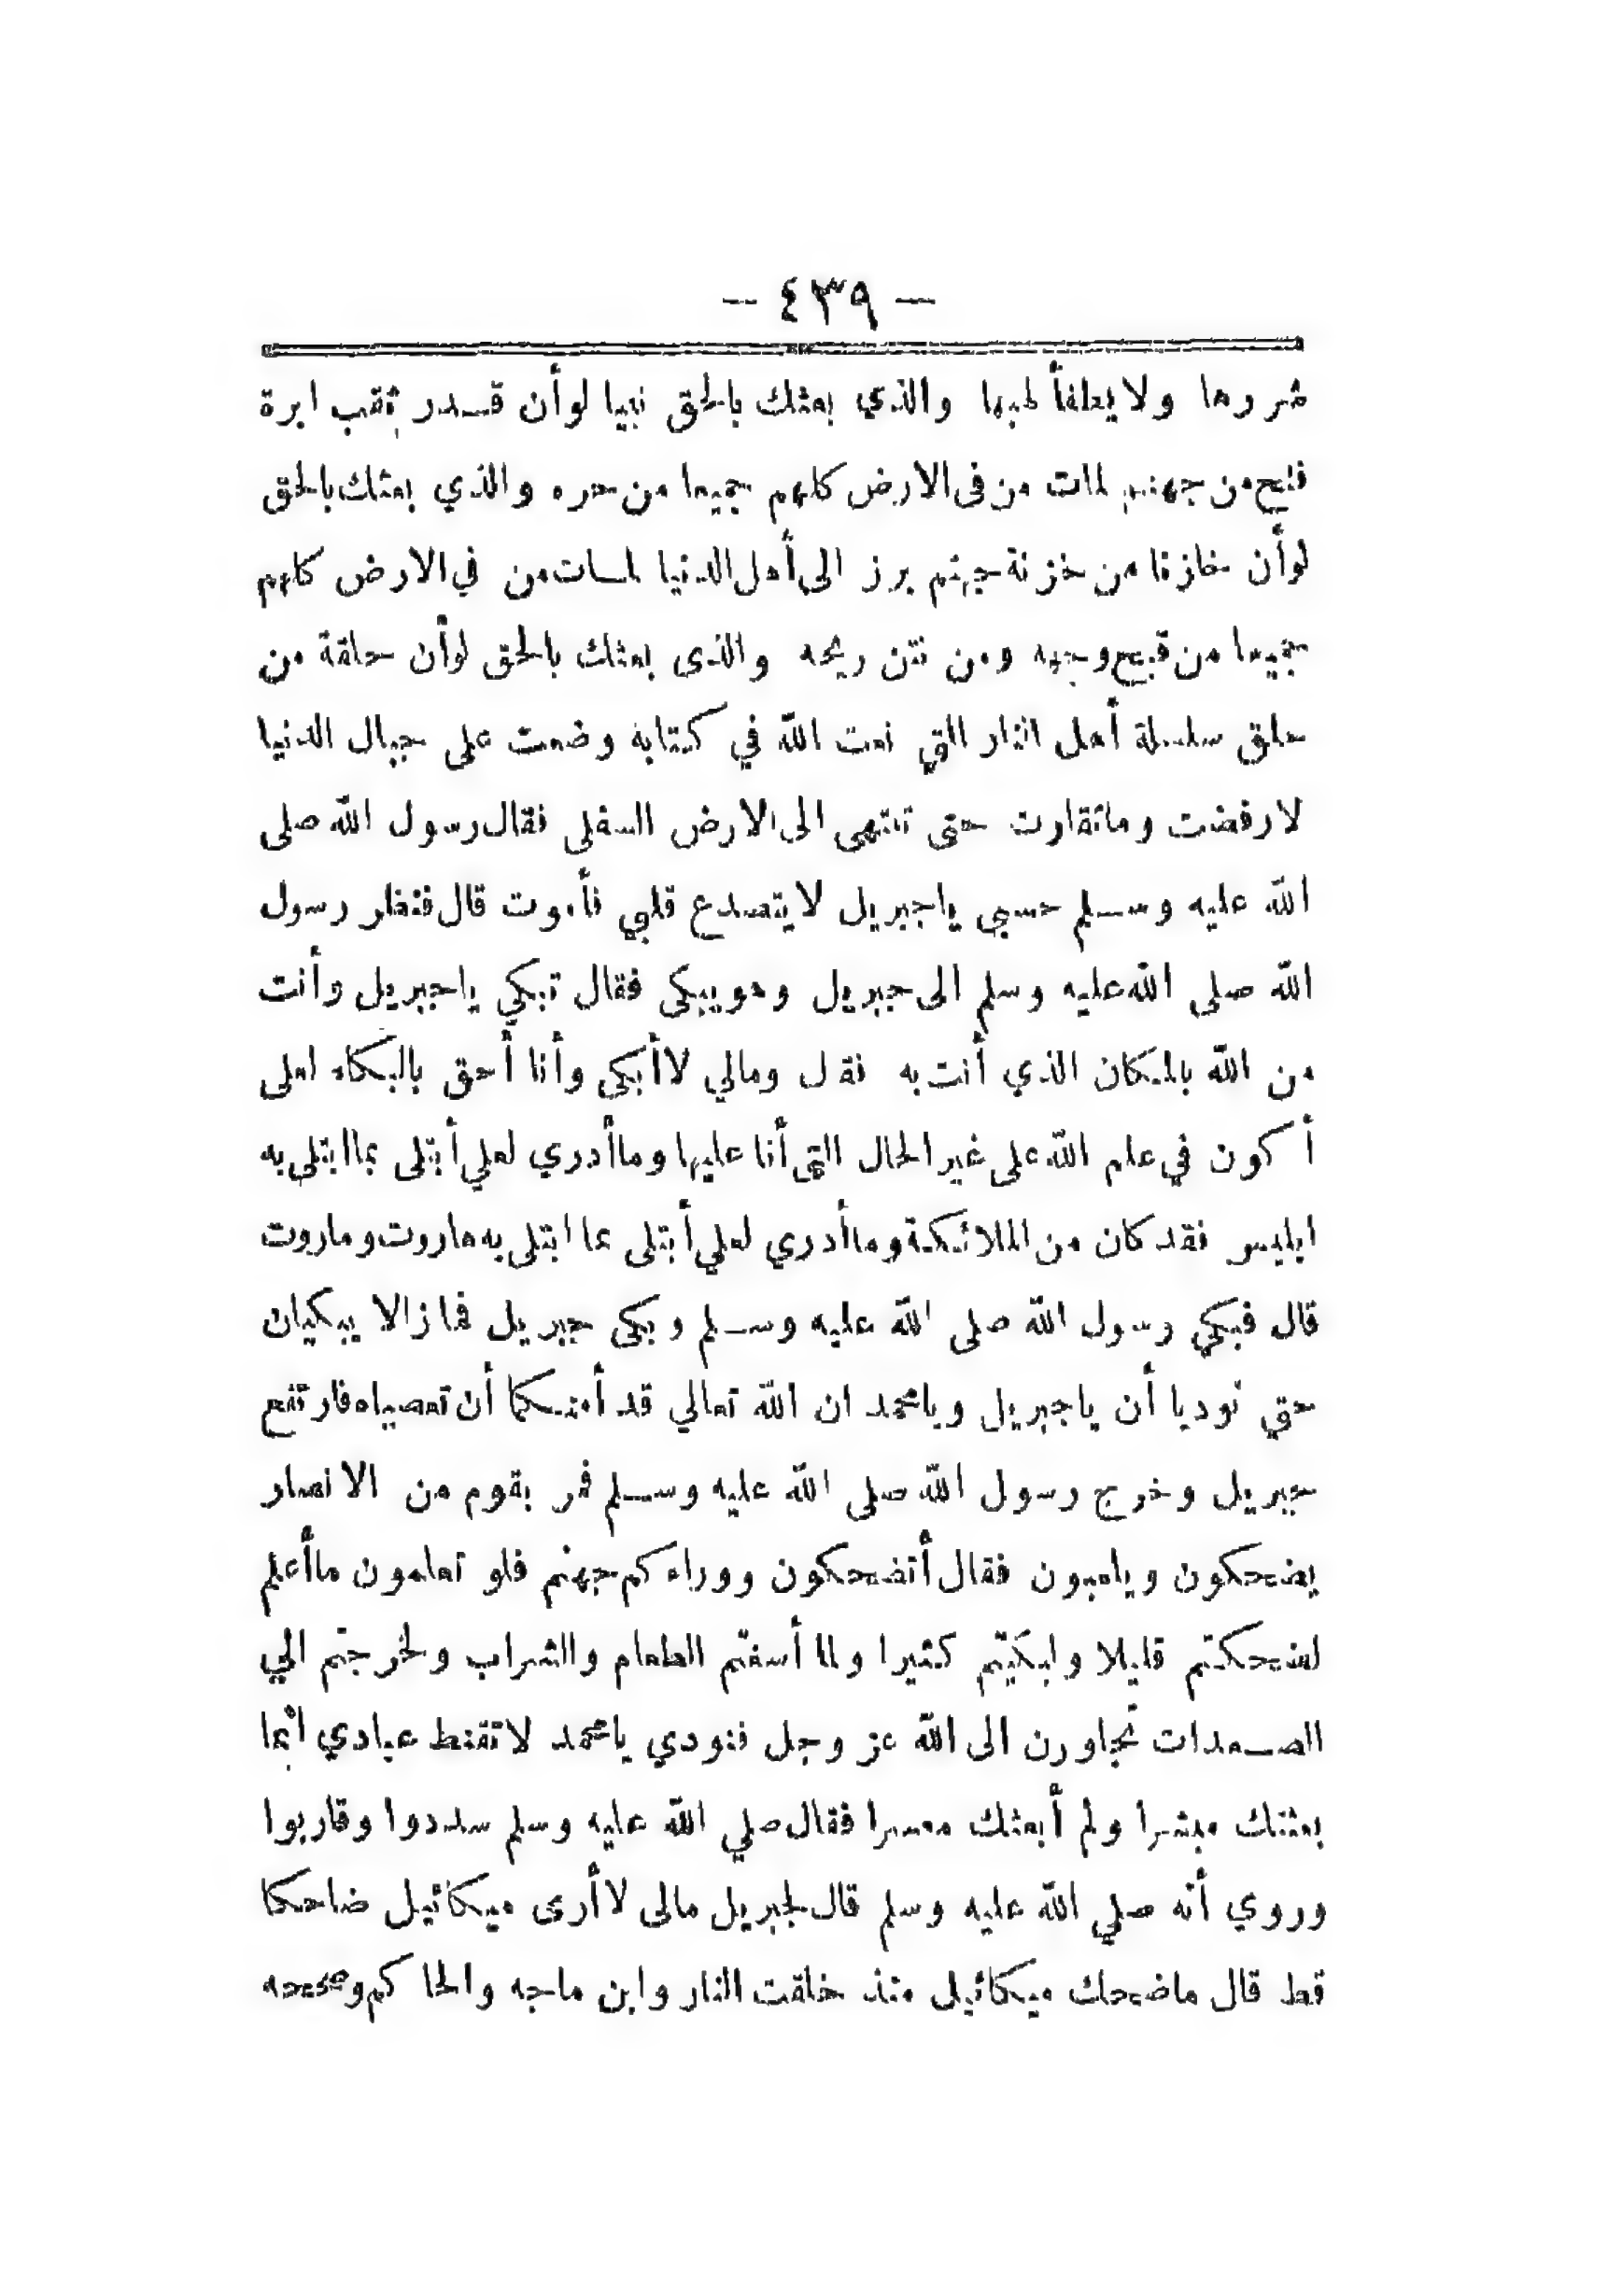 — ٤٣٩ —
شررها ولا يطفأ لهبها والذي بعثك بالحق نبيا لو أن قدر ثقب ابرة
فتح من جهنم لمات من في الارض كلهم جميعا من حره والذي بعثك بالحق
لو أن خازنا من خزنة جهنم برز الى أهل الدنيا لمات من في الارض كلهم
جميعا من قبح وجهه ومن نتن ريحه والذى بعثك بالحق لو أن حلقة من
حلق سلسلة أهل النار التي نعت الله في كتابه وضعت على جبال الدنيا
لارفضت وماتقارت حتى تنتهى الى الارض السفلى فقال رسول الله صلى
الله عليه وسلم حسبي ياجبريل لا يتصدع قلبي فأموت قال فنظر رسول
الله صلى الله عليه وسلم الى جبريل وهو يبكى فقال تبكي ياجبريل وأنت
من الله بالمكان الذي أنت به فقال ومالي لا أبكى وأنا أحق بالبكاء لعلى
أكون في علم الله على غير الحال التى أنا عليها وما أدري لعلي أبتلى بما ابتلى به
ابليس فقد كان من الملائكة وما أدري لعلي أبتلى بما ابتلى به هاروت وماروت
قال فبكي رسول الله صلى الله عليه وسلم وبكى جبريل فمازالا يبكيان
حتي نوديا أن ياجبريل ويامحمد ان الله تعالي قد أمنكما أن تعصياه فارتفع
جبريل وخرج رسول الله صلى الله عليه وسلم فمر بقوم من الانصار
يضحكون ويلعبون فقال أتضحكون ووراءكم جهنم فلو تعلمون ما أعلم
لضحكتم قليلا ولبكيتم كثيرا ولما أسغتم الطعام والشراب ولخرجتم الي
الصعدات تجاورن الى الله عز وجل فنودي يامحمد لا تقنط عبادي انما
بعثتك مبشرا ولم أبعثك معسرا فقال صلي الله عليه وسلم سددوا وقاربوا
وروي أنه صلي الله عليه وسلم قال لجبريل مالى لا أرى ميكائيل ضاحكا
قط قال ماضحك ميكائيل منذ خلقت النار وابن ماجه والحاكم وصححه